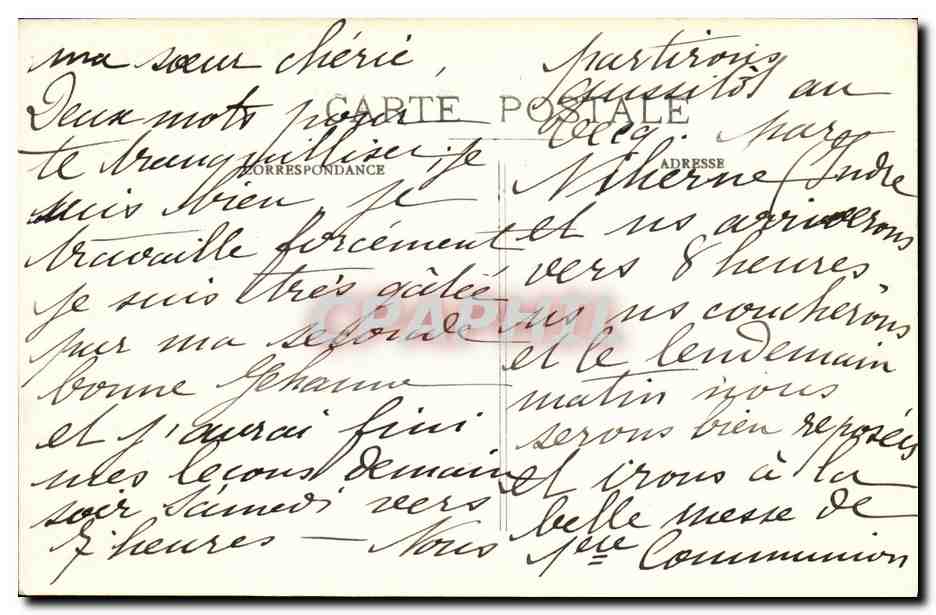 ma sœur chérie,
Deux mots pour
te tranquilliser, je
suis bien je
travaille forcément
je suis très gâtée
par ma seconde
bonne Jehanne
et j'aurai fini
mes leçons demain
soir Samedi vers
7 heures — Nous
CARTE POSTALE
CORRESPONDANCE
ADRESSE
partirons
aussitôt au
par
Niherne (Indre
et ns arriverons
vers 8 heures
ns ns coucherons
et le lendemain
matin nous
serons bien reposées
et irons à la
belle messe de
1ère Communion
CPAPHIL